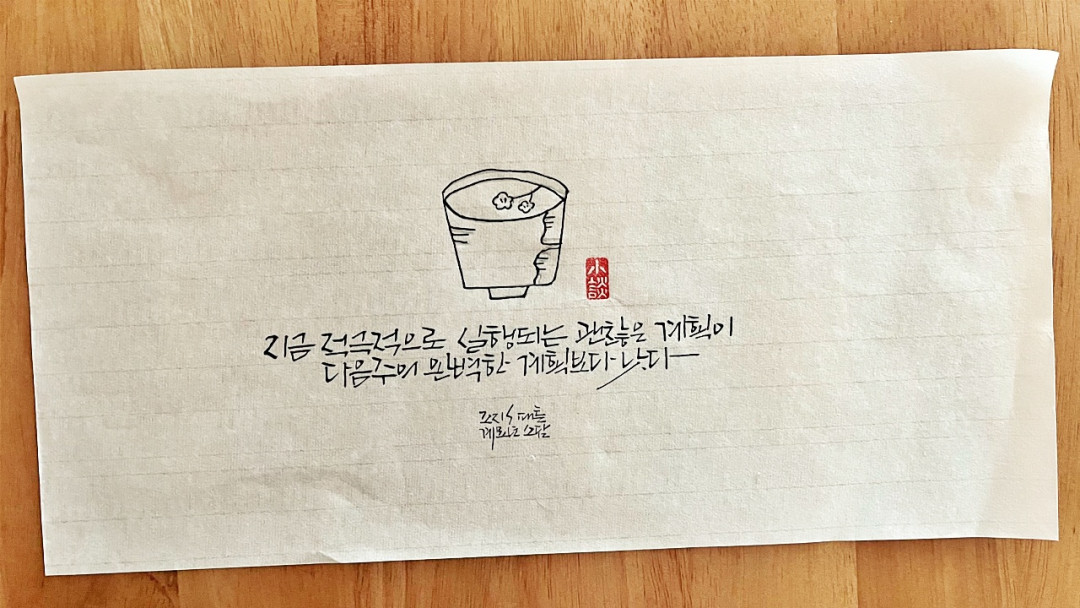 小談
지금 적극적으로 실행되는 괜찮은 계획이
다음주의 완벽한 계획보다 낫다
조지 S 패튼
소담